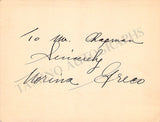 To Mr. Chapman
Sincerely
Norina Greco